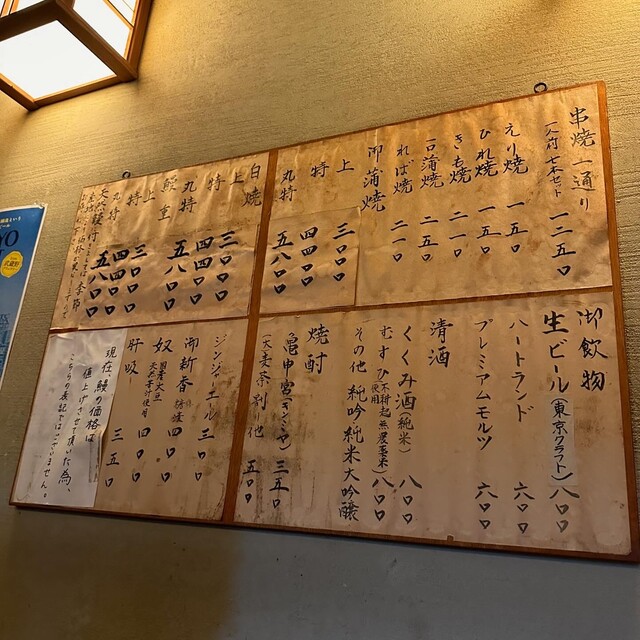 串焼一通り
一人前 七本セット 一二五〇
えり焼 一五〇
ひれ焼 一五〇
きも焼 二一〇
一口蒲焼 二五〇
ればー焼 二一〇
御蒲焼
上 三〇〇〇
特 四四〇〇
丸特 五八〇〇
白焼
上 三〇〇〇
特 四四〇〇
丸特 五八〇〇
鰻重
上 三〇〇〇
特 四四〇〇
丸特 五八〇〇
御飲物
生ビール(東京クラフト) 八〇〇
ハートランド 六〇〇
プレミアムモルツ 六〇〇
清酒
くくみ酒(純米) 八〇〇
むすひ(不耕起無農薬米)使用 八〇〇
その他 純吟 純米大吟醸
焼酎
亀甲宮(キンミヤ) 三五〇
(大麦・奈剤)他 五〇〇
ジンジャーエール 三〇〇
御新香 四〇〇
奴 国産大豆 天然苦汁使用 四〇〇
肝吸 三五〇
現在鰻の価格は
値上げさせて頂いた為、
こちらの表記ではございません。